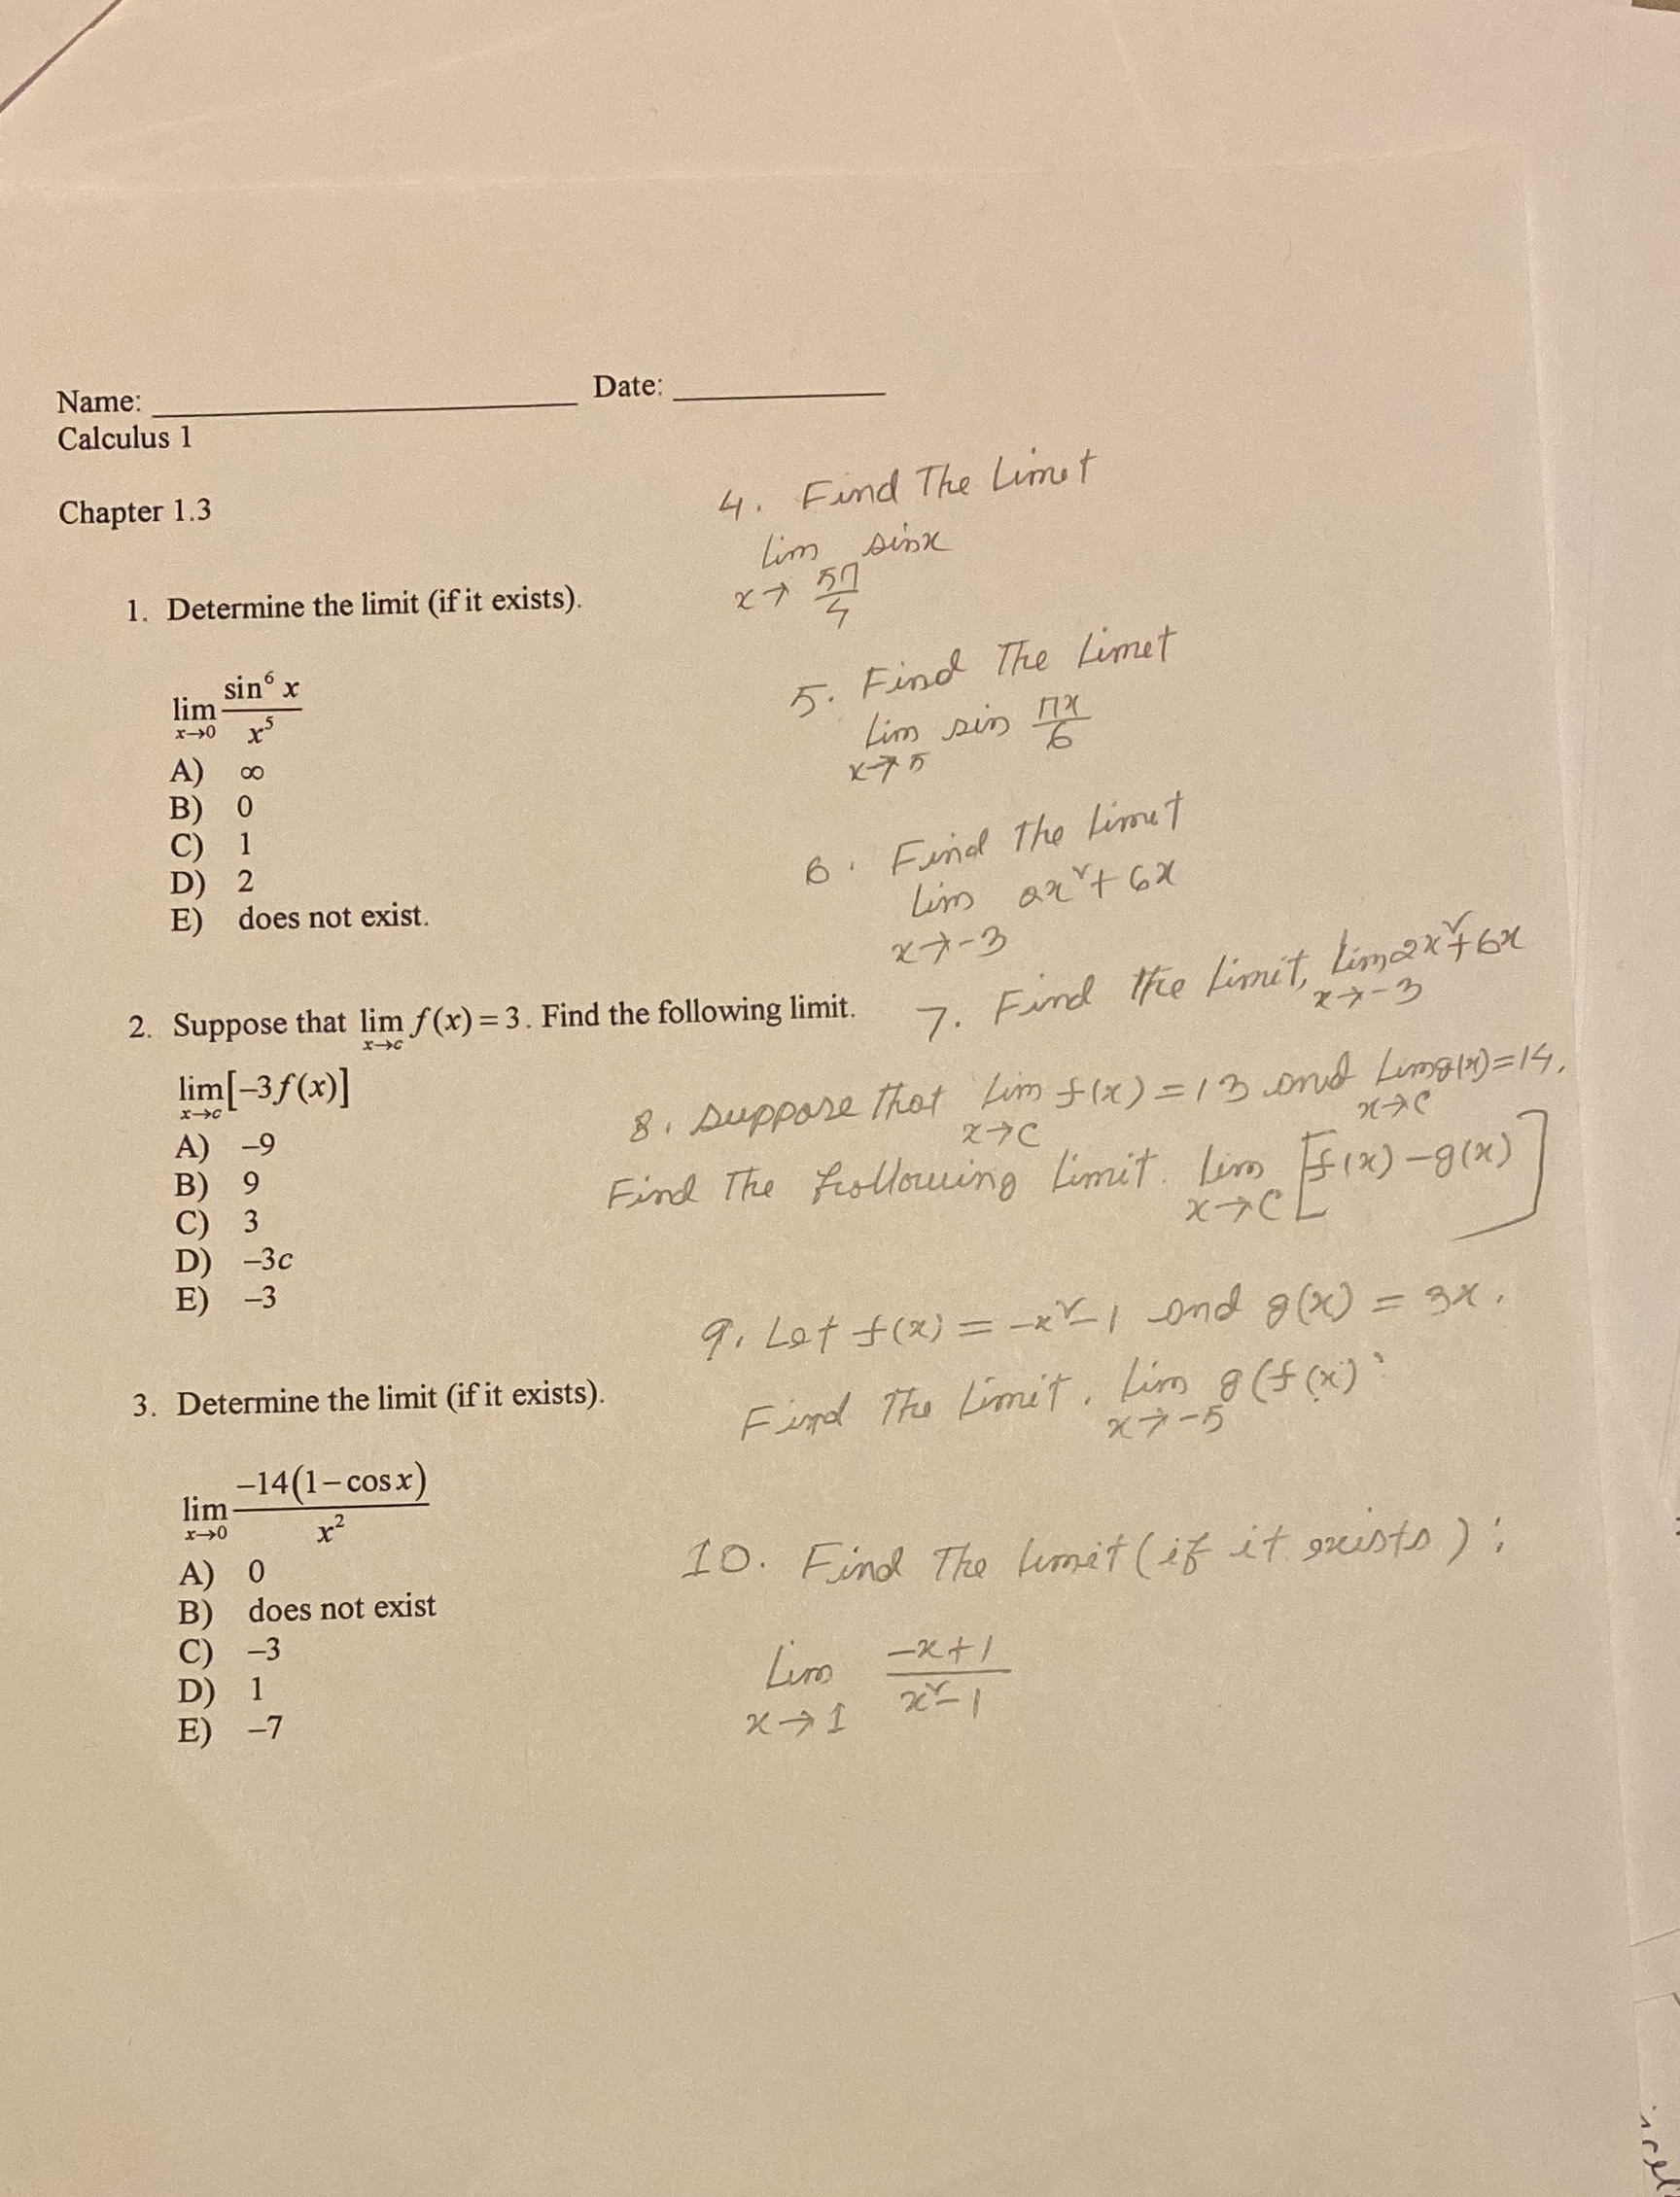 Name: ______________ Date: ______________
Calculus 1
Chapter 1.3
1. Determine the limit (if it exists).
lim x→0 sin⁶ x / x⁵
A) ∞
B) 0
C) 1
D) 2
E) does not exist.
2. Suppose that lim x→c f(x) = 3. Find the following limit.
lim x→c [−3f(x)]
A) −9
B) 9
C) 3
D) −3c
E) −3
3. Determine the limit (if it exists).
lim x→0 −14(1−cos x) / x²
A) 0
B) does not exist
C) −3
D) 1
E) −7
4. Find The Limit
lim x→ 5π/4 sinx
5. Find The Limit
Lim x→5 sin πx/6
6. Find The Limit
Lim x→−3 2x²+6x
7. Find the Limit, Lim x→−3 2x²+6x
8. Suppose that Lim x→C f(x) = 13 and Lim x→C g(x)=14.
Find The following Limit. Lim x→C [f(x) −g(x)]
9. Let f(x) = −x²−1 and g(x) = 3x.
Find The Limit. Lim x→−5 g(f(x)
10. Find The Limit (if it exists):
Lim x→1 −x+1 / x²−1